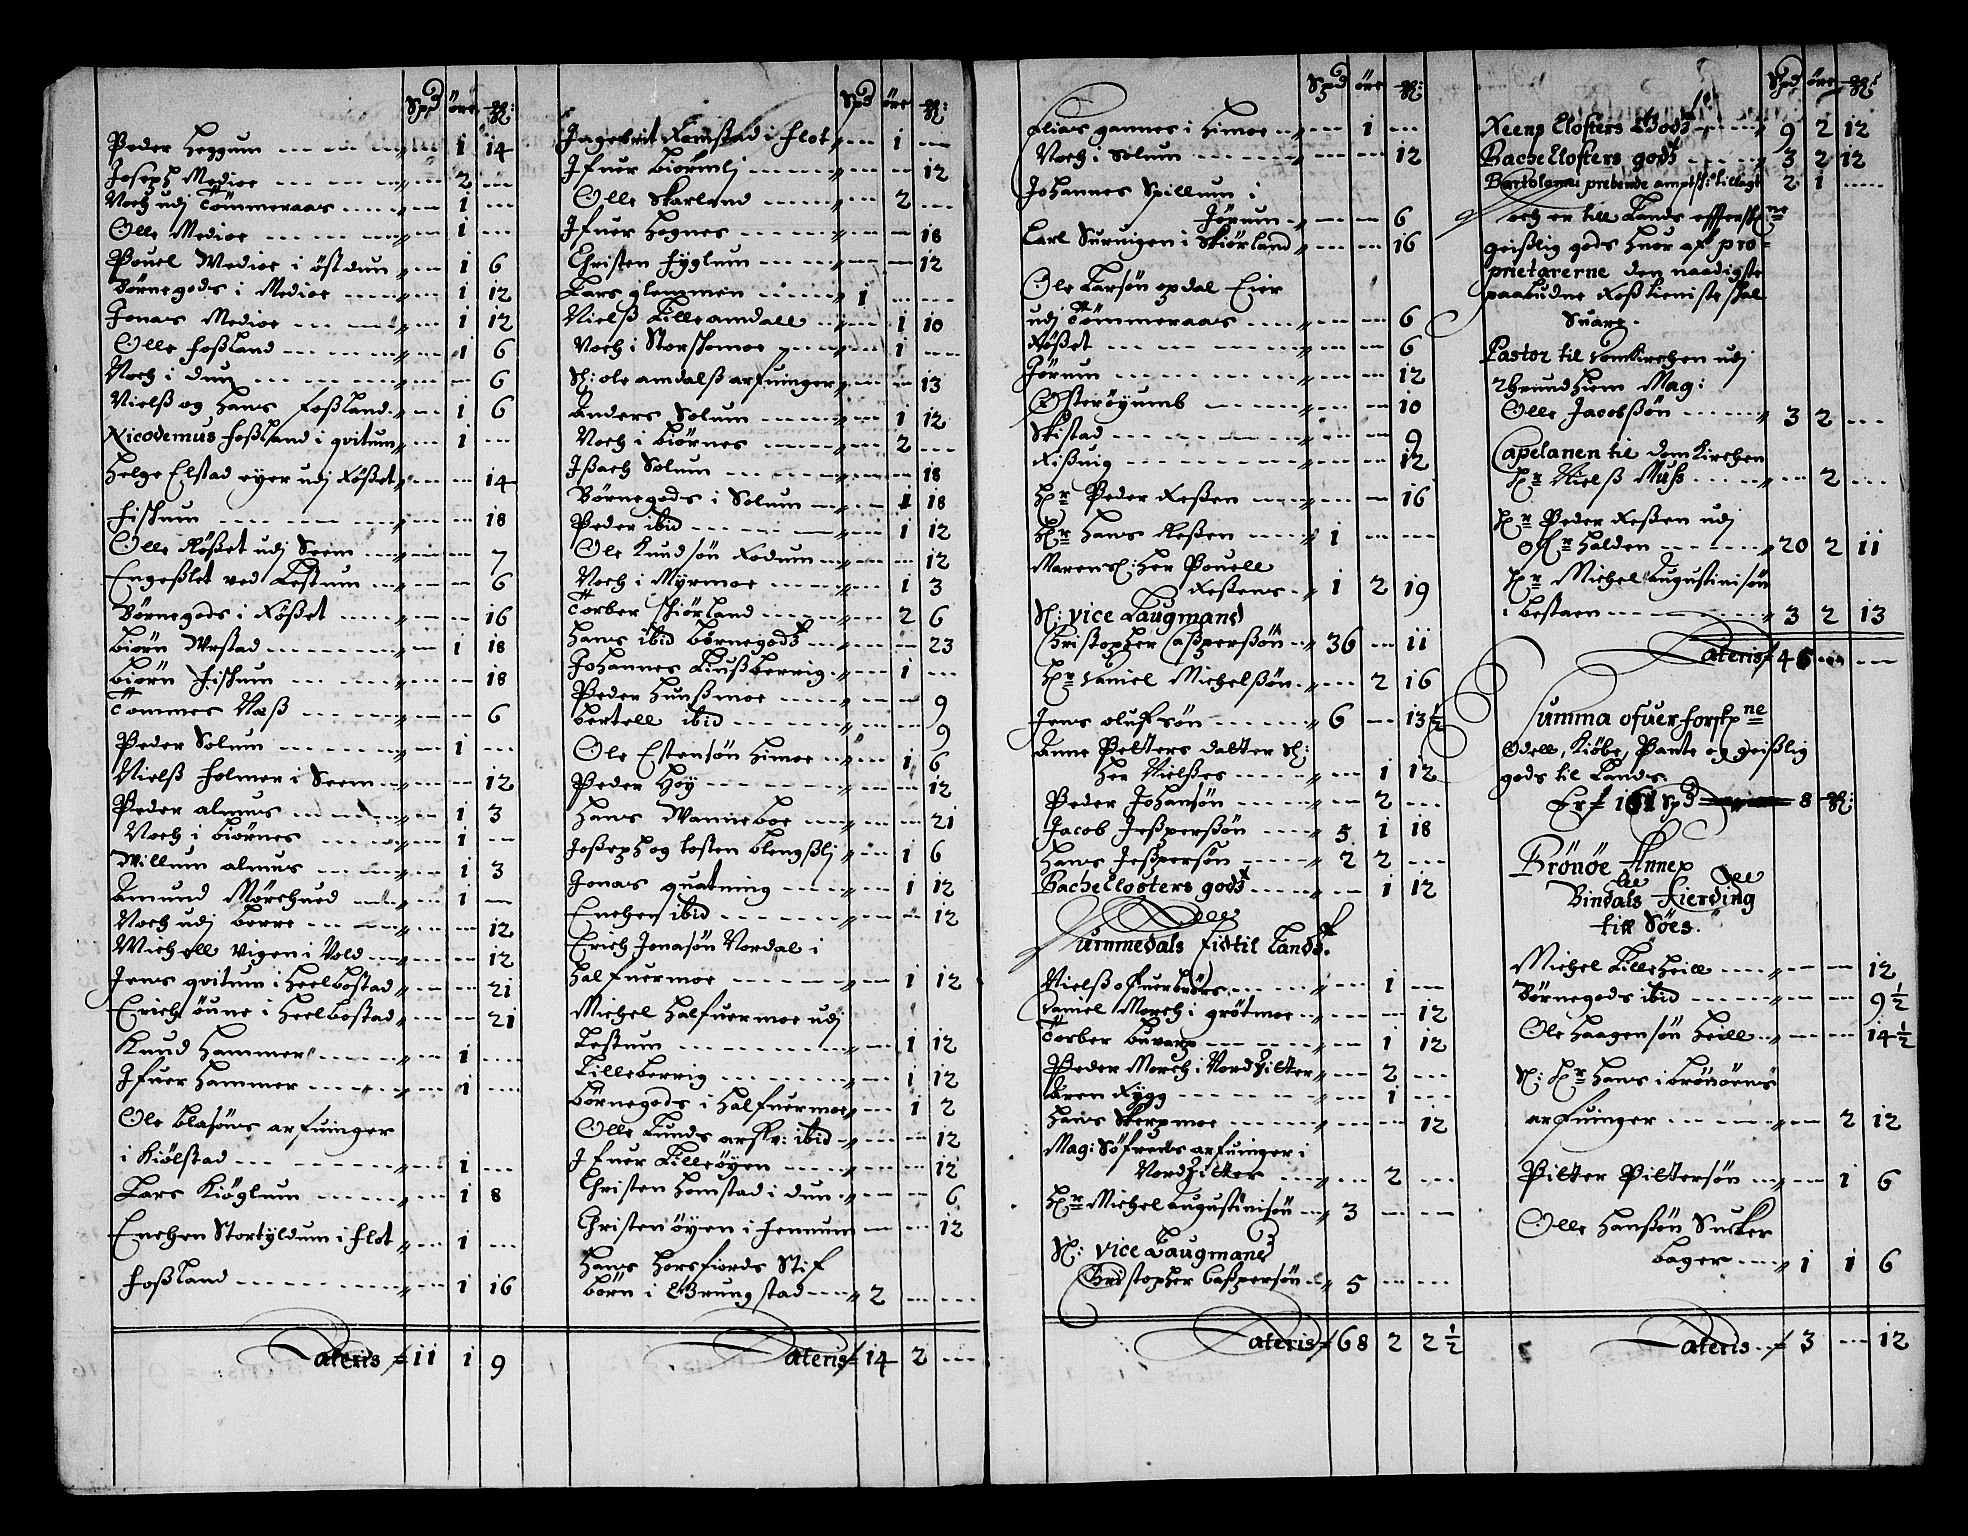 Spd öre ₰:
Peder Heggum - - - 1 14
Joseph Medioe - - - 2 - -
Noch udj Tömmeraas - - - 1 - -
Olle Medioe - - - 1 - -
Pouel Medioe i östdun - - 1 6
Börnegods i Medioe - - 1 12
Jonas Medioe - - - 1 12
Olle Foßland - - - 1 6
Noch i dun - - - 6
Nielß og Hans Foßland - - 1 6
Nicodemus Foßland i qvitum - - 1 - -
Helge Elstad eyer udj Rößet - - - 14
Fiskum - - - 18
Olle Rößet udj Seem - - - 7
Engeßlet ved Lestum - - - 6
Börnegods i Rößet - - - 16
Biörn Urstad - - - 1 18
Biörn Fiskum - - - 18
Tommes Næß - - - 6
Peder Solum - - - 1 - -
Nielß Holmer i Seem - - - 12
Peder almus - - - 1 3
Noch i Biörnes - - - 1 - -
Willum almus - - - 1 3
Amund Mörchued - - 1 - -
Noch udj Berre - - - 12
Michell Vigen i Vold - - - 12
Jens qvitum i Heelbostad - - - 21
Erich öune i Heelbostad - - - 21
Knud Hammer - - - 1 - -
Ifuer Hammer - - - 1 - -
Ole Clasöns arfuinger
i Kiölstad - - - 1 - -
Lars Kiöglum - - - 1 8
Enchen Stortyldum i Flot - - 1 - -
Foßland - - - 1 16
Lateris 11 1 9
Spd öre ₰:
Ingebrit Romstad i Flot - - 1 - -
Ifuer Biörnlj - - - 12
Olle Skarland - - - 2 - -
Ifuer Hognes - - - 18
Christen Fyglum - - - 12
Lars Glemmen - - 1 - - -
Nielß Lilleamdall - - 1 10
Noch i Storskomoe - - 1 - -
Sl: ole amdalß arfuinger - - - 13
Anders Solum - - - 1 12
Noch i Biörnes - - - 2 - -
Ißach Solum - - - 18
Börnegods i Solum - - 1 18
Peder ibid - - - 1 12
Ole Knudsön Rodum - - - 12
Noch i Myrmoe - - - 1 3
Torber Skiörland - - - 2 6
Hans ibid börnegodß - - - 23
Johannes Liußberrig - - 1 - -
Peder Hunßmoe - - - 9
Bertell ibid - - - 9
Ole Estensön Himoe - - 1 6
Peder Höy - - - 12
Hans Wanneboe - - - 21
Joßeph og tosten blengßlj - - 1 6
Jonas quatning - - - 1 12
Enchen ibid - - - 12
Erich Jonasön Nordal i
Halfuermoe - - - 1 12
Michel Halfuermoe udj
Lestum - - - 1 12
Lilleberrig - - - 1 12
Börnegods i Halfuermoe - - 1 2
Olle Lunds arffv: ibid - - - 12
Ifuer Lilleöyen - - - 12
Christen Homstad i dun - - - 6
Christen öyen i Hemnum - - - 12
Hans Horsfiords Stif
börn i Grungstad - - 2 - - -
Lateris 14 2 - -
Spd öre ₰:
Elias gannes i Himoe - - 1 - -
Noch i Solum - - - 12
Johannes Spillum i
Jörum - - - 6
Carl Suenigen i Skiörland - - - 16
Ole Larsön opdal Eier
udj Tömmeraas - - - 6
Rößet - - - 6
Jörum - - - 12
Österöyumb - - - 10
Skistad - - - 9
Rißuig - - - 12
Hr Peder Reßen - - - 16
Hr Hans Reßen - - 1 - - -
Maren Sl: Her Pouell
Reßens - 1 2 19
Sl: vice Laugmand
Christopher Caßperßön - - 36 - 11
Hr Daniel Michelßön - - 2 16
Jens olufsön - - 6 - 13½
Anne Petters datter Sl:
Her Nielßes - - - 1 12
Peder Johansön - - - 2 - -
Jacob Jeßperßön - - 5 1 18
Hans Jeßpersön - - 2 2 - -
Bache Closters godß - - 1 12
Nummedals Fid til Lands
Nielß ofuerbröts - - - 1 - -
Daniel Morch i grötmoe - - - 12
Torber Buvarp - - - 1 12
Peder Morch i Nordfitter - - 2 - -
Aren Rygg - - - 1 - -
Hans Skerpmoe - - - 12
Mag: Söfrens arfuinger i
Nordfitter - - - 2 - -
Hr Michel augustinisön - - 3 - - -
Sl: vice Laugmand
Christopher Caßpersön - - 5 - - -
Lateris 68 2 2½
Spd öre ₰
Reens Closters Godß - - 9 2 12
Bache Closters godß - - 3 2 12
Bartolomæi prebende amptsk: tillagt 2 1 - -
Noch er till Lands effterskne
geißlig gods huor af pro-
prietarerne den naadigste
paabudne Roßtieniste skal
Suare.
Pastor til domkirchen udj
Thrundhiem Mag:
Olle Jacobßön - - 3 2 - -
Capelanen til domkirchen
Hr Nielß Muß - - - 2 - -
Hr Peder Reßen udj
Ofverhalden - - - 20 2 11
Hr Michel augustinisön
i bestaen - - - 3 2 13
Lateris 46 - - -
Summa ofuer forskne
Odell, Kiöbe, Pante og geißlig
gods til Lands
Er 161 Spd 8 ₰:
Brönöe Annex
Bindals Fierding
till Söes.
Michel Lilleheill - - - 12
Börnegods ibid - - - 9½
Ole Haagensön Heill - - - 14½
Sl: Hr Hans i brönöens
arfuinger - - - 2 12
Pitter Pittersön - - 1 6
Olle Hanßön Sucker
bager - - 1 1 6
Lateris 3 - 12